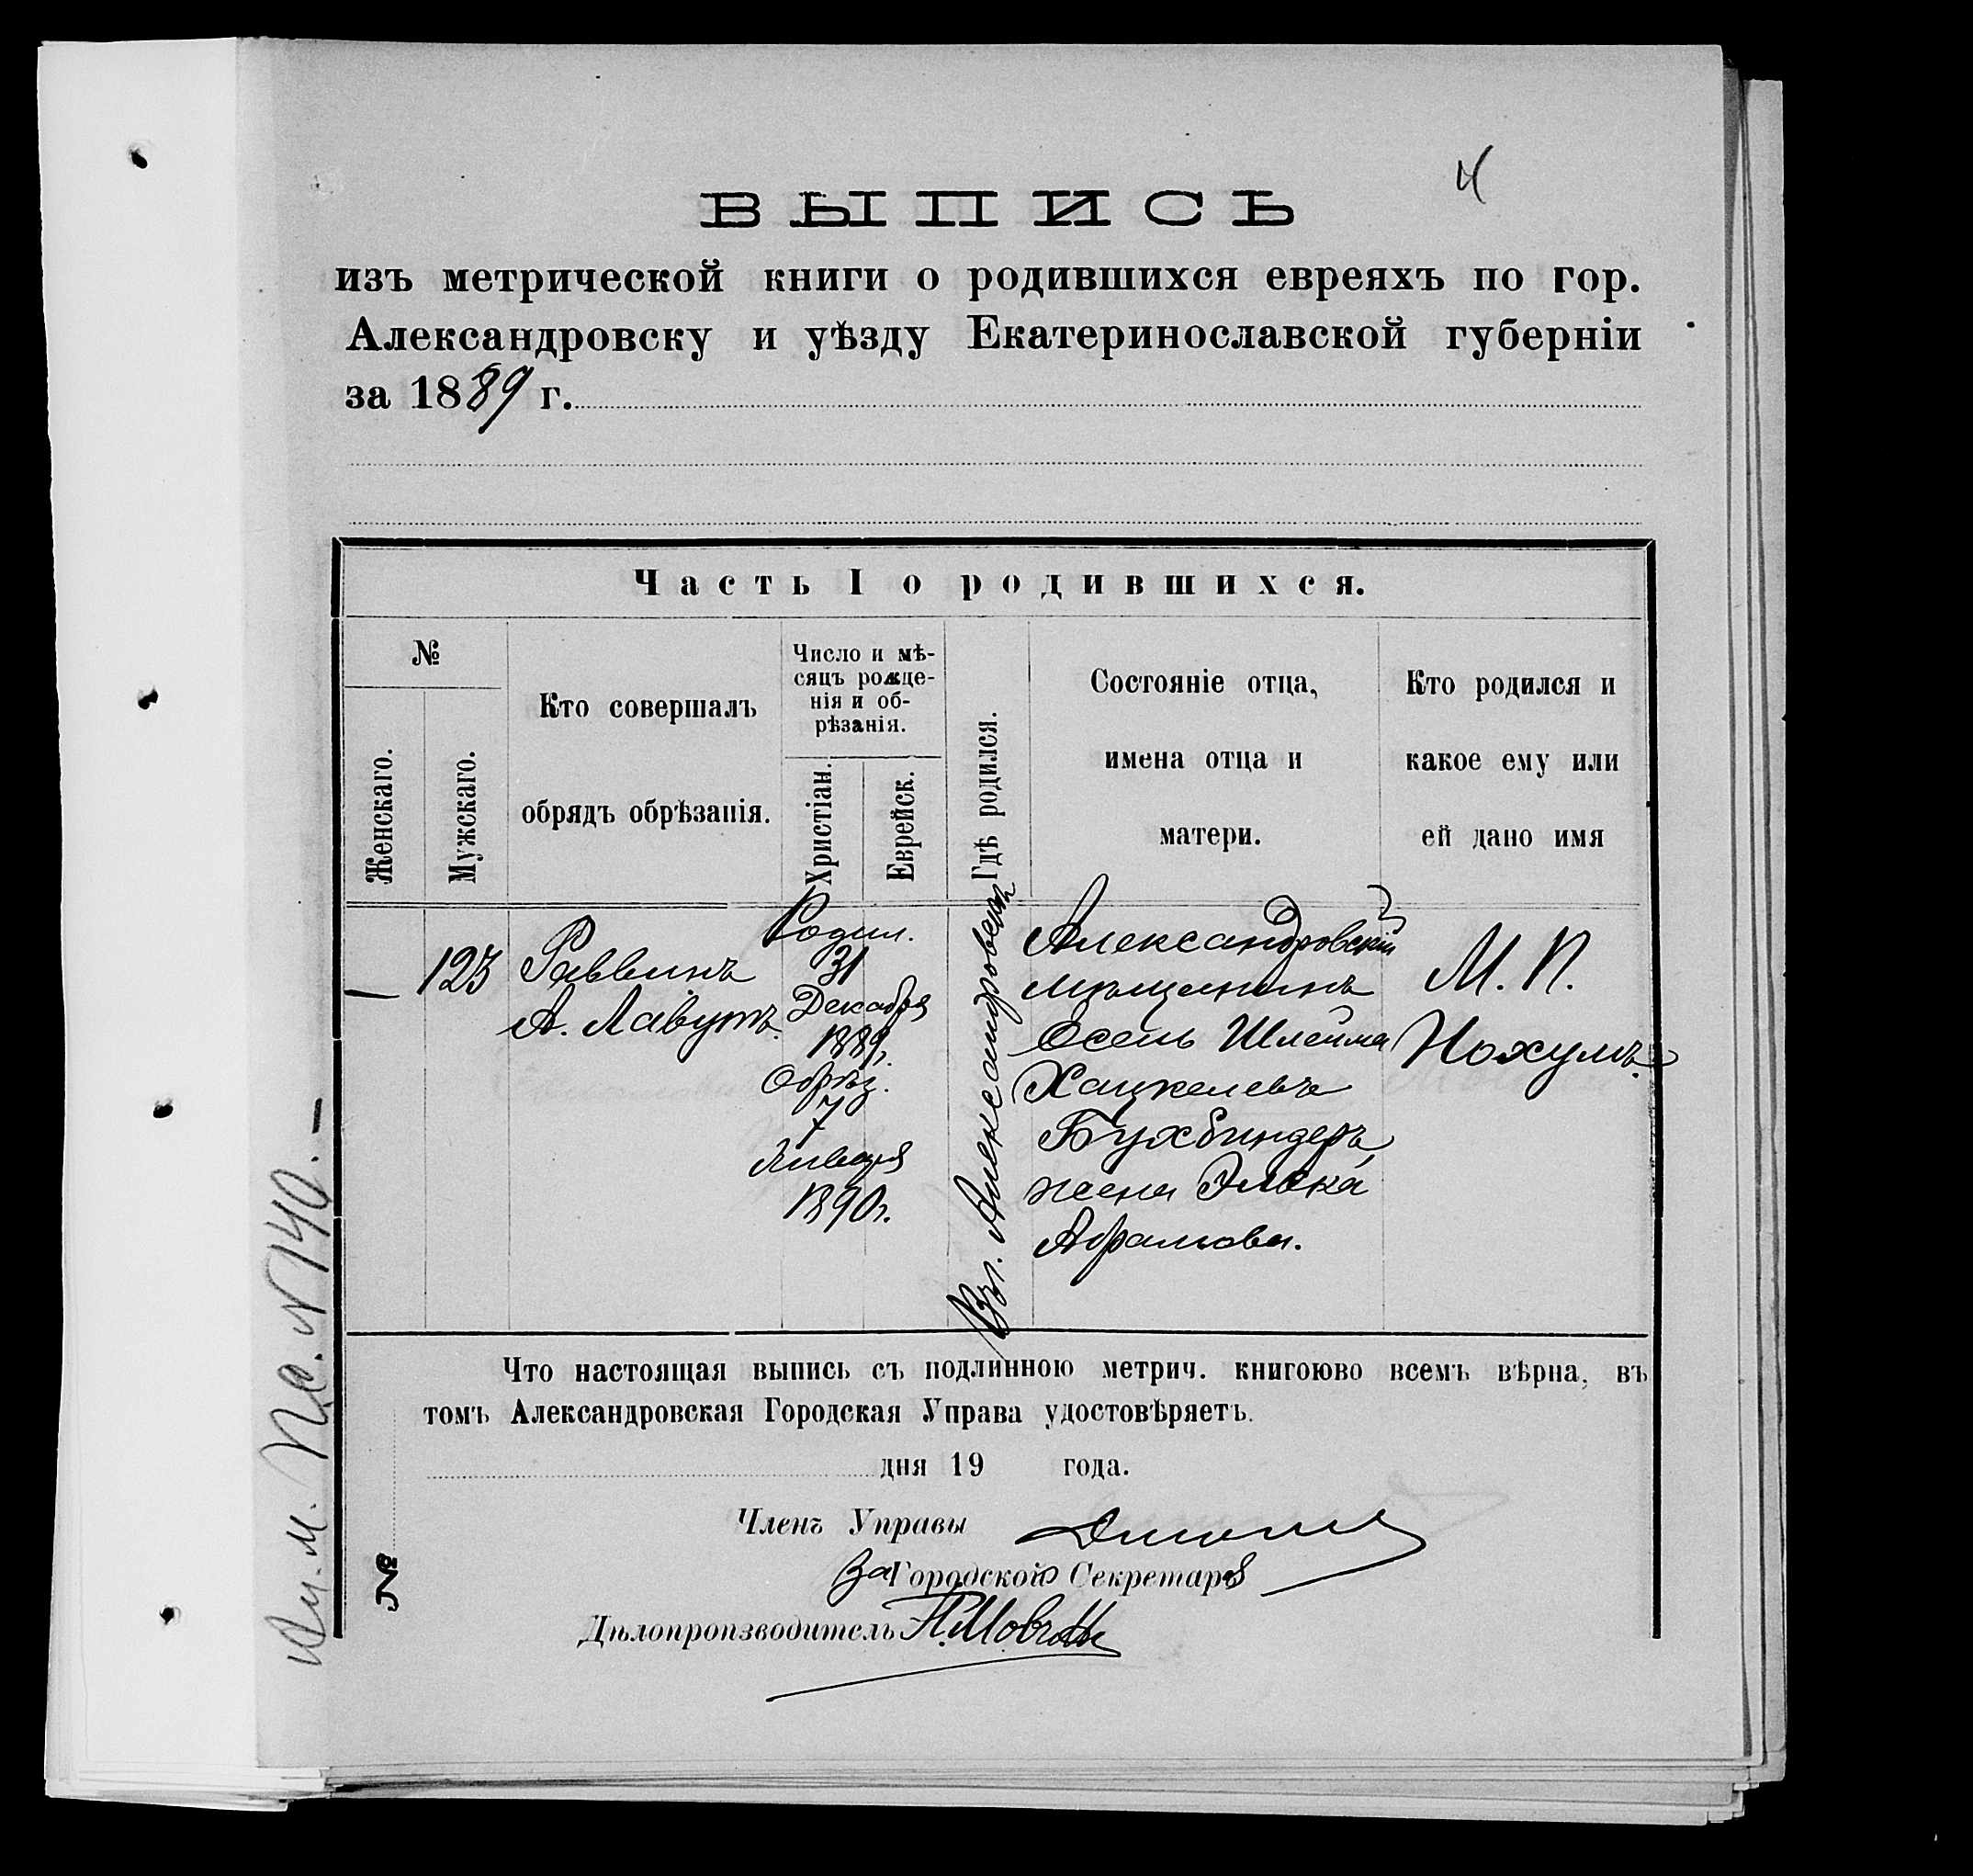 4
ВЫПИСЬ
изъ метрической книги о родившихся евреяхъ по гор.
Александровску и уѣзду Екатеринославской губерніи
за 1889 г.
Часть I о родившихся.
№
Женскаго.
Мужскаго.
Кто совершалъ
обрядъ обрѣзанія.
Число и мѣ-
сяцъ рожде-
нія и об-
рѣзанія.
Христіан.
Еврейск.
Гдѣ родился.
Состояніе отца,
имена отца и
матери.
Кто родился и
какое ему или
ей дано имя
—
123
Раввинъ
А. Лавутъ.
Родил.
31
Декабря
1889г.
Обрѣз.
7
Января
1890г.
Въ г. Александровскѣ
Александровскій
мѣщанинъ
Есель Шлейма
Хацкелевъ
Бухбиндеръ,
жена Элька
Абрамова.
М. П.
Нохумъ.
Что настоящая выпись съ подлинною метрич. книгоюво всемъ вѣрна, въ
томъ Александровская Городская Управа удостовѣряетъ.
дня 19 года.
Членъ Управы
За Городской Секретаря
Дѣлопроизводитель
№
№ 140. —